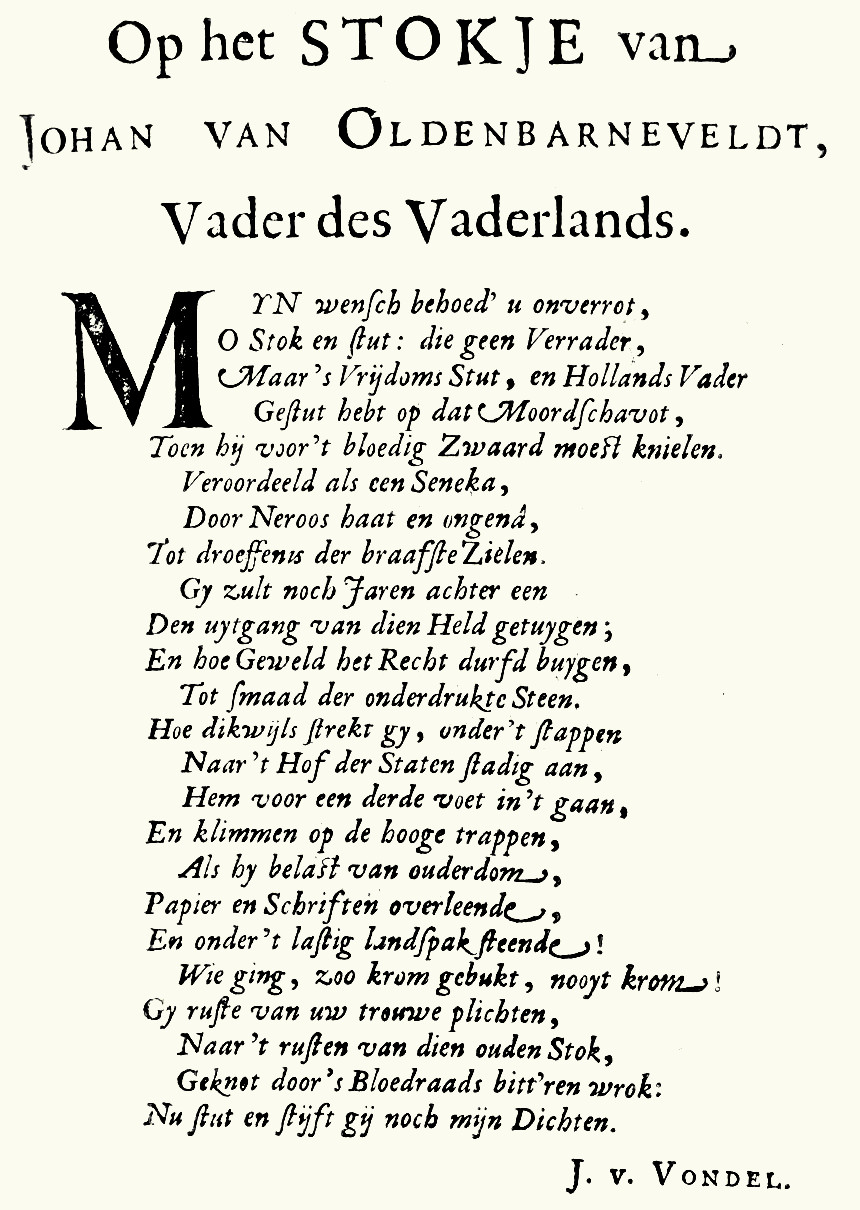 Op het STOKJE van
JOHAN VAN OLDENBARNEVELDT,
Vader des Vaderlands.
MYN wenſch behoed' u onverrot,
O Stok en ſtut: die geen Verrader,
Maar 's Vrijdoms Stut, en Hollands Vader
Geſtut hebt op dat Moordſchavot,
Toen hij voor't bloedig Zwaard moeſt knielen.
Veroordeeld als een Seneka,
Door Neroos haat en ongenâ,
Tot droeffenis der braafſte Zielen.
Gy zult noch Jaren achter een
Den uytgang van dien Held getuygen;
En hoe Geweld het Recht durfd buygen,
Tot ſmaad der onderdrukte Steen.
Hoe dikwijls ſtrekt gy, onder't ſtappen
Naar 't Hof der Staten ſtadig aan,
Hem voor een derde voet in't gaan,
En klimmen op de hooge trappen,
Als hy belaſt van ouderdom,
Papier en Schriften overleende,
En onder't laſtig landſpak ſteende!
Wie ging, zoo krom gebukt, nooyt krom!
Gy ruſte van uw trouwe plichten,
Naar 't ruſten van dien ouden Stok,
Geknot door 's Bloedraads bitt'ren wrok:
Nu ſtut en ſtijft gij noch mijn Dichten.
J. v. VONDEL.